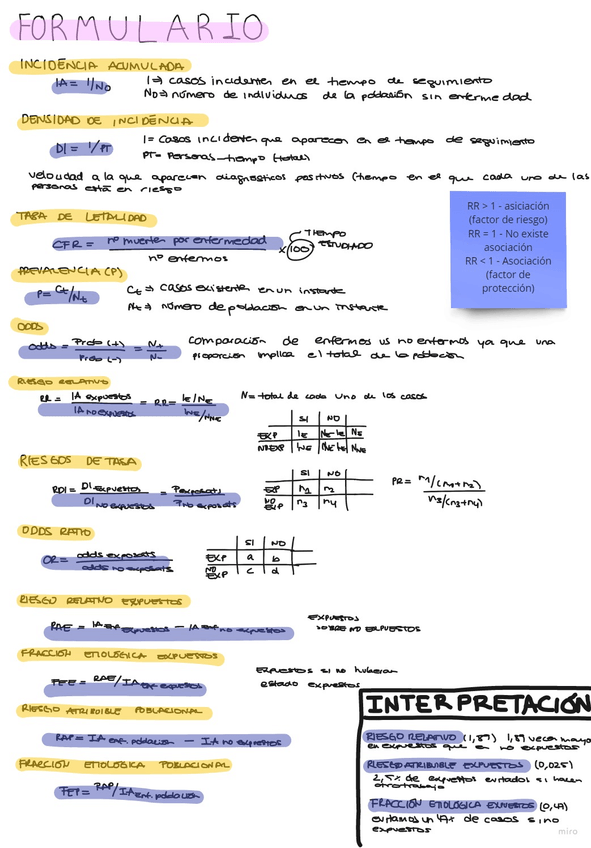 FORMULARIO
INCIDENCIA ACUMULADA
IA = I/No
I => casos incidentes en el tiempo de seguimiento
No => número de individuos de la población sin enfermedad
DENSIDAD DE INCIDENCIA
DI = I/PT
I = Casos incidentes que aparecen en el tiempo de seguimiento
PT = Personas-tiempo (total)
velocidad a la que aparecen diagnósticos positivos (tiempo en el que cada uno de las
personas está en riesgo
RR > 1 - asiciación
(factor de riesgo)
RR = 1 - No existe
asociación
RR < 1 - Asociación
(factor de
protección)
TASA DE LETALIDAD
CFR = nº muertes por enfermedad / nº enfermos x 100
TIEMPO
ESTUDIADO
PREVALENCIA (P)
P = Ct/Nt
Ct => casos existentes en un instante
Nt => número de población en un instante
ODDS
odds = Prob (+) / Prob (-) = N+ / N-
Comparación de enfermos vs no enfermos ya que una
proporción implica el total de la población
RIESGO RELATIVO
RR = IA expuestos / IA no expuestos = RR = IE/NE / INE/NNE
N = total de cada uno de los casos
SI NO
EXP IE NE-IE NE
NO EXP INE NNE
RIESGOS DE TASA
RDI = DI expuestos / DI no expuestos = P exposats / P no exposats
SI NO
EXP n1 n2
NO EXP n3 n4
PR = n1/(n1+n2) / n3/(n3+n4)
ODDS RATIO
OR = odds exposats / odds no exposats
SI NO
EXP a b
NO EXP c d
RIESGO RELATIVO EXPUESTOS
RAE = IA enf expuestos - IA enf no expuestos
EXPUESTOS
SOBRE NO EXPUESTOS
FRACCIÓN ETIOLÓGICA EXPUESTOS
FEE = RAE/IA enf. expuestos
Expuestos si no hubieran
estado expuestos
RIESGO ATRIBUIBLE POBLACIONAL
RAP = IA enf. población - IA no expuestos
FRACCIÓN ETIOLÓGICA POBLACIONAL
FEP = RAP/IA enf. población
INTERPRETACIÓN
RIESGO RELATIVO (1,87) 1,87 veces mayor
en expuestos que en no expuestos
RIESGO ATRIBUIBLE EXPUESTOS (0,025)
2,5% de expuestos evitados si hacen
otro trabajo
FRACCIÓN ETIOLÓGICA EXPUESTOS
evitamos un de casos si no
expuestos
miro